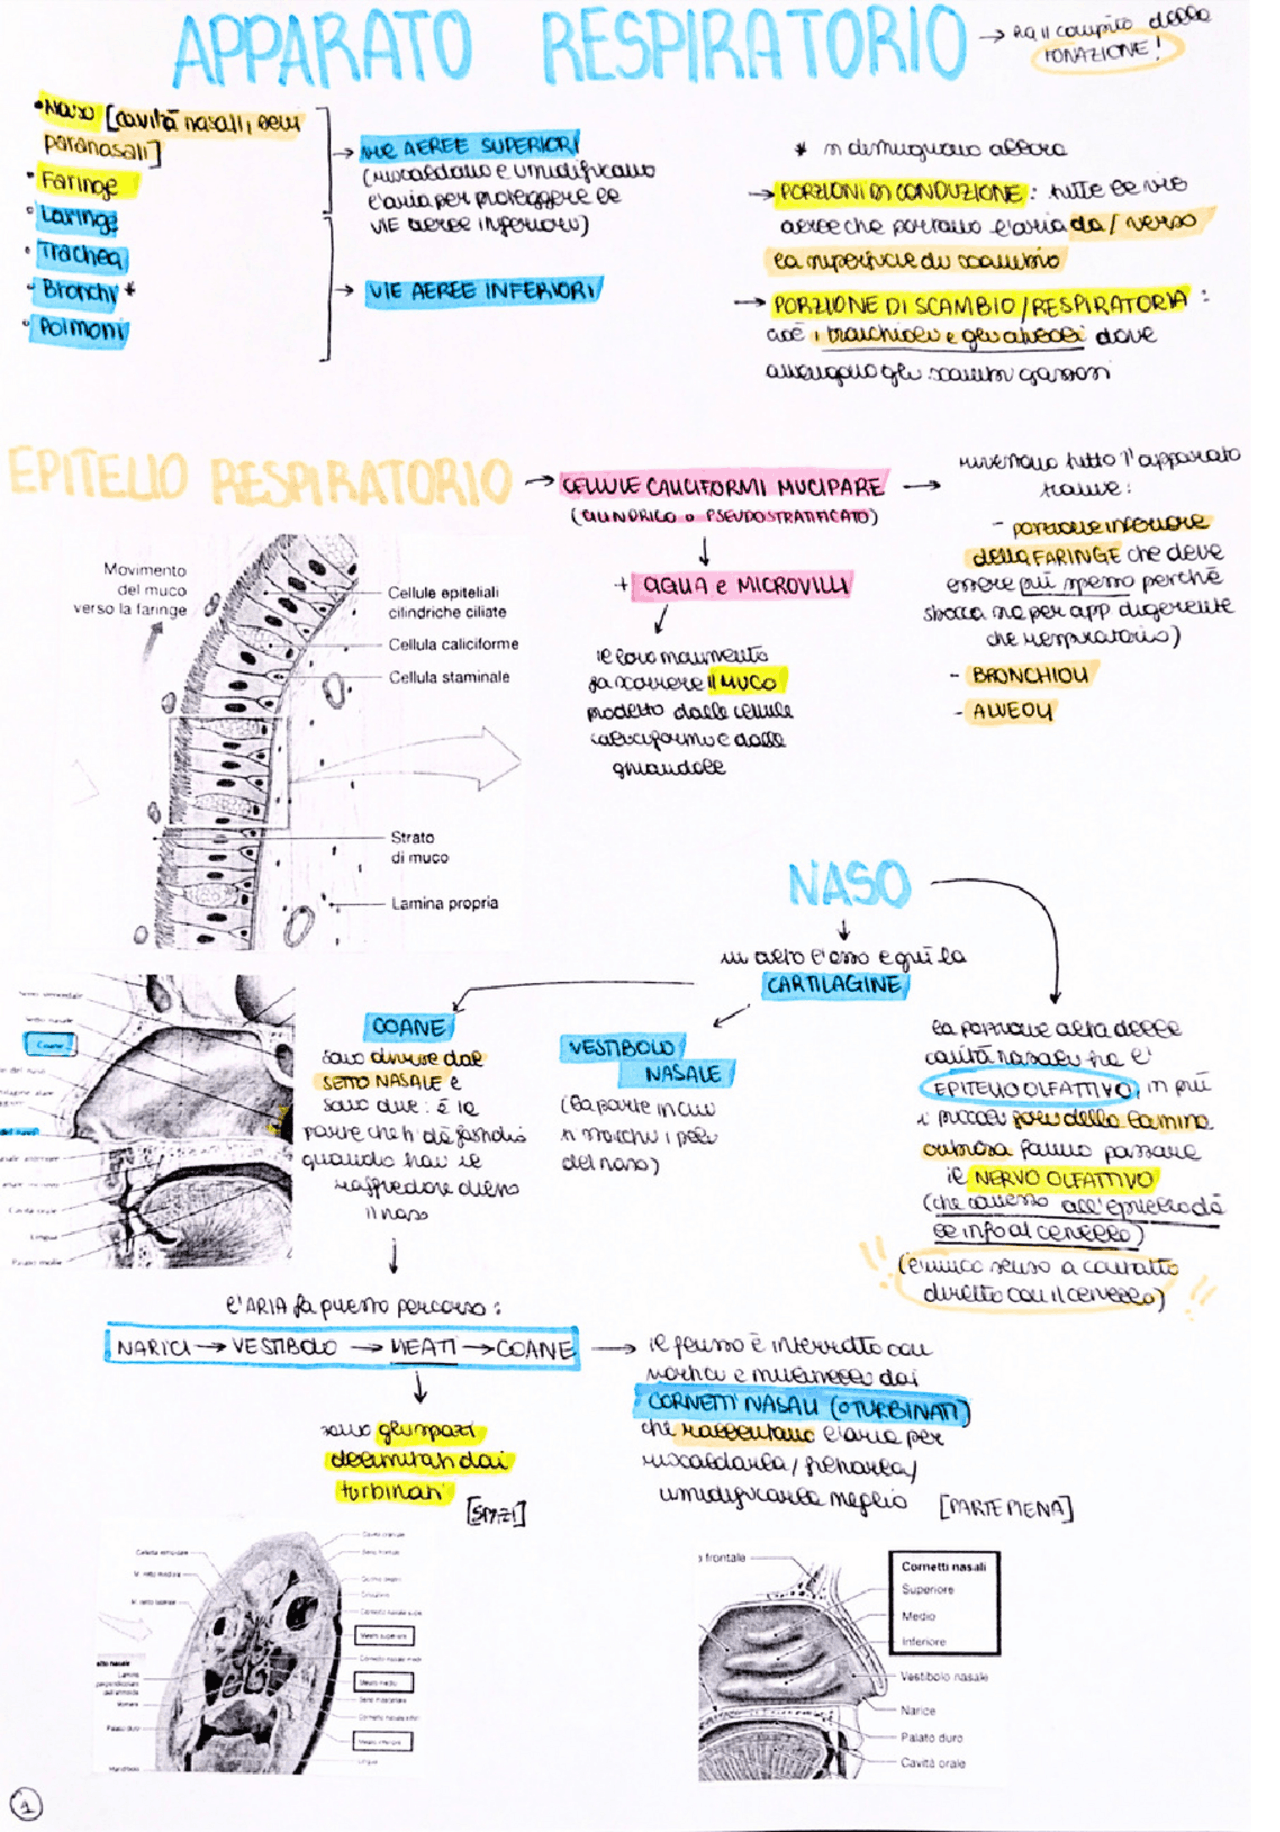 APPARATO RESPIRATORIO → ha il compito della
FONAZIONE!
• Naso [cavità nasali, seni
paranasali]
• Faringe
• Laringe
• Trachea
• Bronchi *
• Polmoni
→ VIE AEREE SUPERIORI
(riscaldano e umidificano
l'aria per proteggere le
VIE aeree inferiori)
→ VIE AEREE INFERIORI
* si distinguono allora
→ PORZIONI DI CONDUZIONE: tutte le vie
aeree che portano l'aria da / verso
la superficie di scambio
→ PORZIONE DI SCAMBIO/RESPIRATORIA:
cioè i bronchioli e gli alveoli dove
avvengono gli scambi gassosi
EPITELIO RESPIRATORIO → CELLULE CALICIFORMI MUCIPARE →
(CILINDRICO o PSEUDOSTRATIFICATO)
+ CIGLIA e MICROVILLI
il loro movimento
fa scorrere il MUCO
prodotto dalle cellule
caliciformi e dalle
ghiandole
rivestono tutto l'apparato
tranne:
- porzione inferiore
della FARINGE che deve
essere più spesso perché
sbocca sia per app digerente
che respiratorio)
- BRONCHIOLI
- ALVEOLI
Movimento
del muco
verso la faringe
Cellule epiteliali
cilindriche ciliate
Cellula caliciforme
Cellula staminale
Strato
di muco
Lamina propria
NASO
in alto l'osso e giù la
CARTILAGINE
COANE
sono divise dal
SETTO NASALE e
sono due: è la
parte che ti dà fastidio
quando hai il
raffreddore dietro
il naso
VESTIBOLO
NASALE
(la parte in cui
ti tocchi i peli
del naso)
la porzione alta delle
cavità nasali ha l'
EPITELIO OLFATTIVO, in più
i piccoli fori della lamina
cribrosa fanno passare
il NERVO OLFATTIVO
(che connesso all'epitelio dà
le info al cervello)
!! (è l'unico senso a contatto !!
diretto con il cervello)
Coane
Lingua
Palato molle
l'ARIA fa questo percorso:
NARICI → VESTIBOLO → MEATI → COANE →
sono gli spazi
delimitati dai
turbinati
[SPAZI]
il flusso è interrotto con
vortici e mulinelli dai
CORNETTI NASALI (o TURBINATI)
che rallentano l'aria per
riscaldarla/ filtrarla/
umidificarla meglio [PARTE PIENA]
Meato superiore
Meato medio
Meato inferiore
Palato duro
Vomere
Lingua
a frontale
Cornetti nasali
Superiore
Medio
Inferiore
Vestibolo nasale
Narice
Palato duro
Cavità orale
1